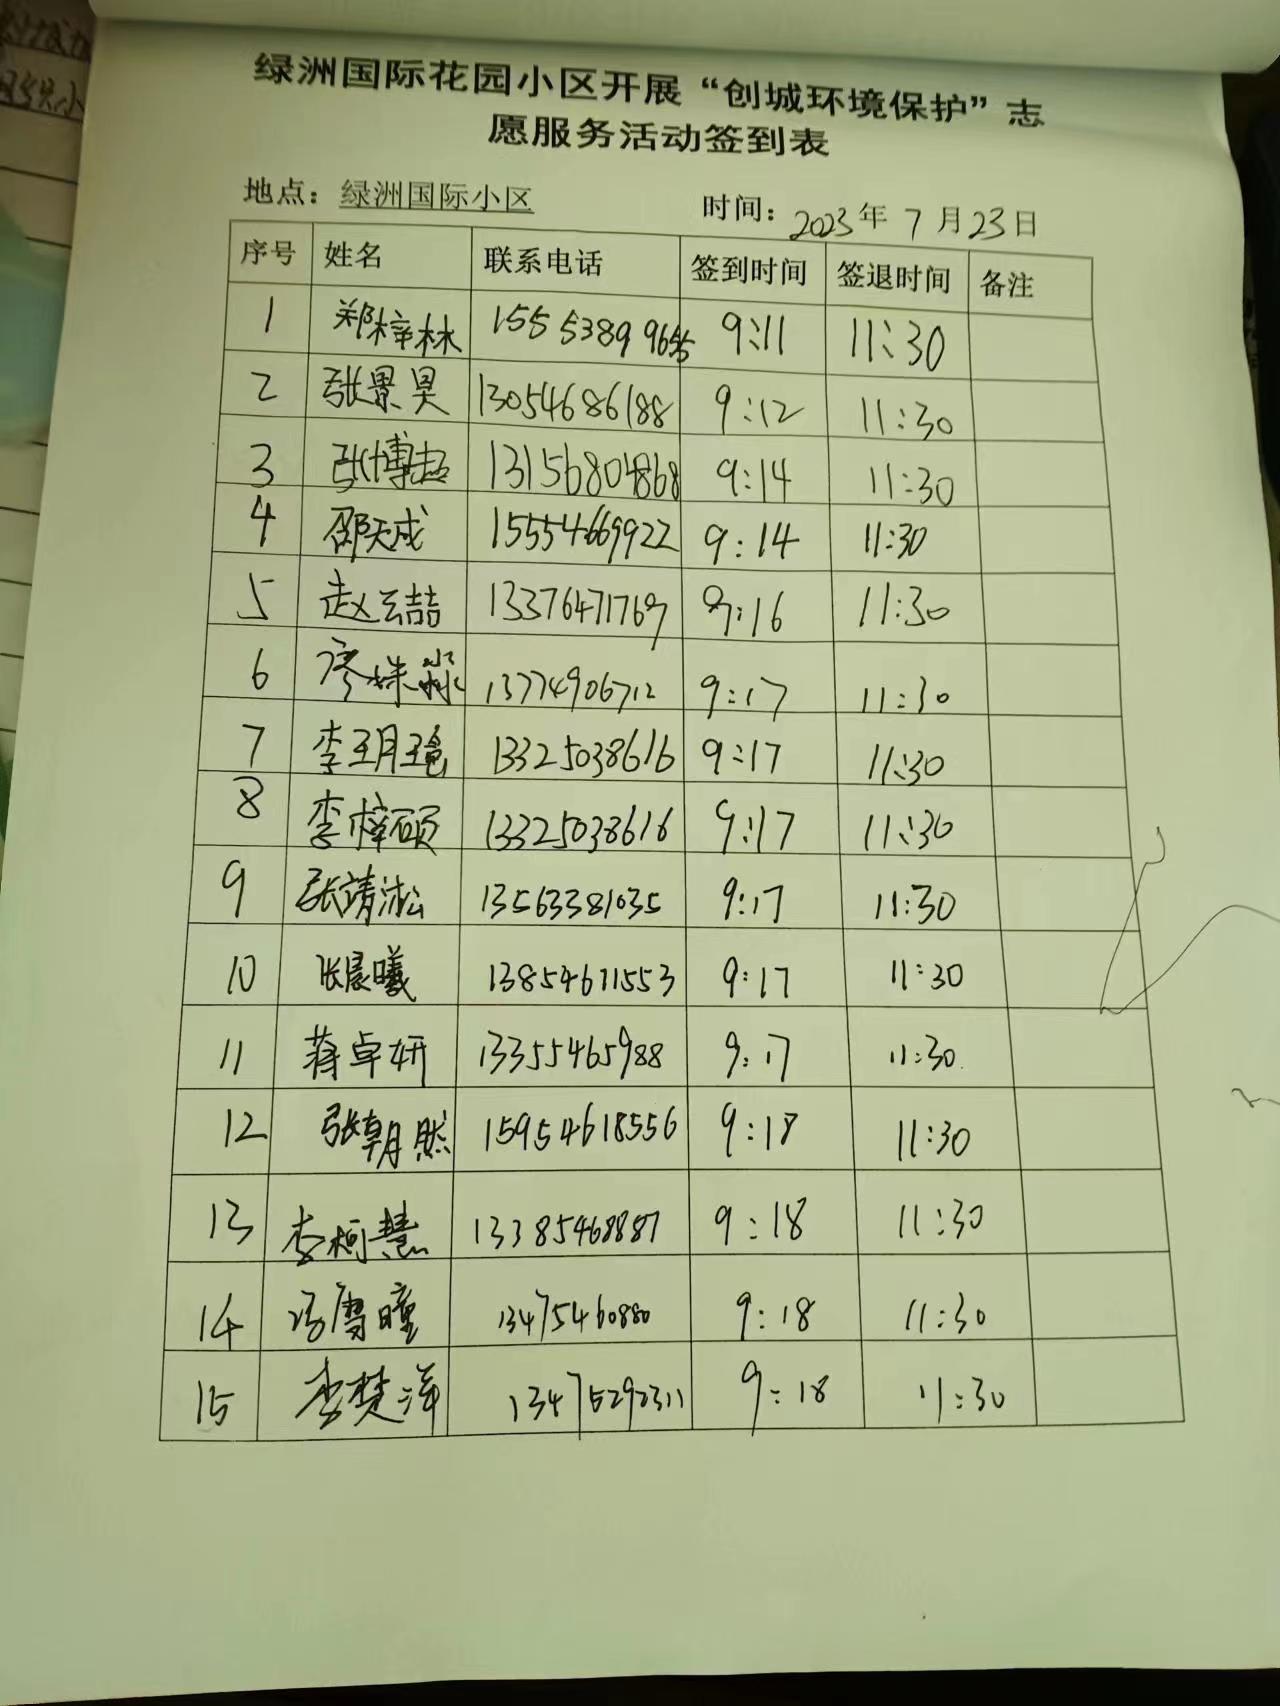 绿洲国际花园小区开展“创城环境保护”志
愿服务活动签到表
地点：绿洲国际小区 时间：2023年7月23日
序号 姓名 联系电话 签到时间 签退时间 备注
1 郑梓林 15553899655 9:11 11:30
2 张景昊 13054686188 9:12 11:30
3 张博超 13156804868 9:14 11:30
4 邵天成 15554669922 9:14 11:30
5 赵云喆 13376471769 9:16 11:30
6 廖姝淼 13774906712 9:17 11:30
7 李玥瑝 13325038616 9:17 11:30
8 李梓硕 13325038616 9:17 11:30
9 张靖淞 13563381035 9:17 11:30
10 张晨曦 13854611553 9:17 11:30
11 蒋卓妍 13355465988 9:17 11:30
12 张朝然 15954618556 9:18 11:30
13 李柯慧 13385468887 9:18 11:30
14 冯雪瞳 13475460880 9:18 11:30
15 李楚洋 13475292311 9:18 11:30